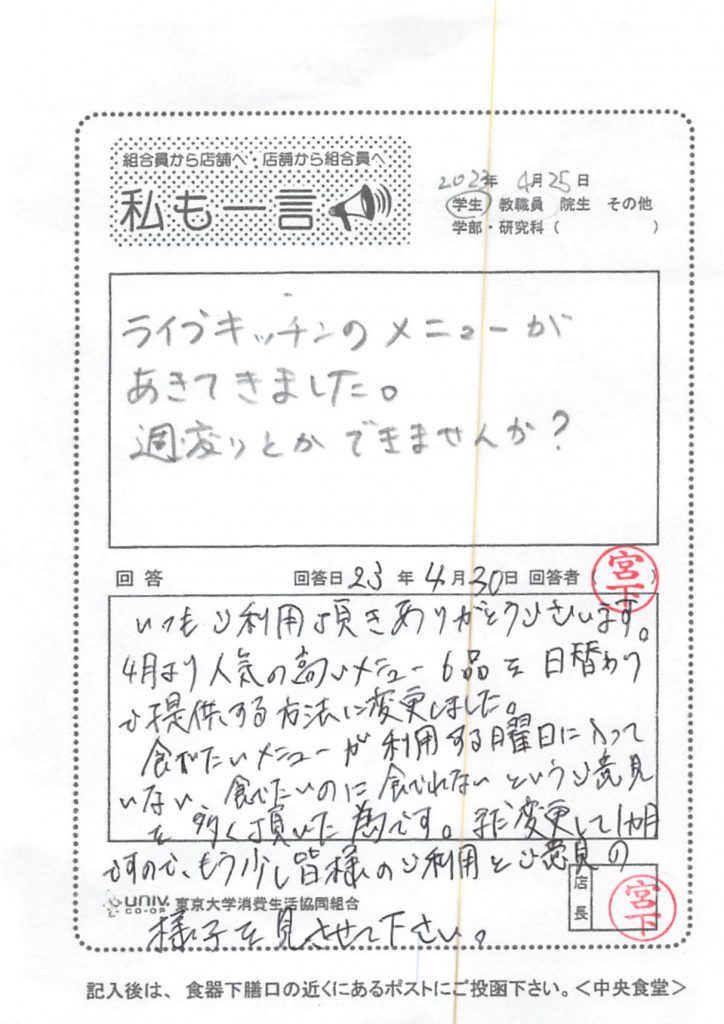 組合員から店舗へ・店舗から組合員へ
私も一言
2023年 4月25日
学生 教職員 院生 その他
学部・研究科( )
ライブキッチンのメニューが
あきてきました。
週変りとかできませんか?
回答 回答日 23年 4月30日 回答者( 宮下 )
いつもご利用頂きありがとうございます。
4月より人気の高いメニュー6品を日替わり
で提供する方法に変更しました。
食べたいメニューが利用する曜日に入って
いない、食べたいのに食べれないというご意見
を多く頂いた為です。まだ変更して1ヵ月
ですので、もう少し皆様のご利用とご意見の
様子を見させて下さい。
UNIV. CO-OP 東京大学消費生活協同組合
店長 宮下
記入後は、食器下膳口の近くにあるポストにご投函下さい。<中央食堂>